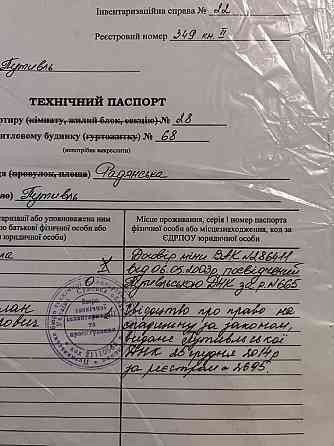 Інвентаризаційна справа № 22
Реєстровий номер 349 кн. II
Путивль
ТЕХНІЧНИЙ ПАСПОРТ
(кімнату, жилий блок, секцію) № 28
житловому будинку (гуртожитку) № 68
(непотрібне викреслити)
(провулок, площа) Радянська
Путивль
або уповноважена ним
по батькові фізичної особи або
юридичної особи)
Місце проживання, серія і номер паспорта
фізичної особи або місцезнаходження, код за
ЄДРПОУ юридичної особи
Договір міни
від 06.05.2003р. посвідчений
Путивльською ДНК за р. №665
Свідоцтво про право на
спадщину за законом,
видане Путивльської
ДНК 25 грудня 2014р
за реєстром 2695.
Бюро
технічної
інвентаризації